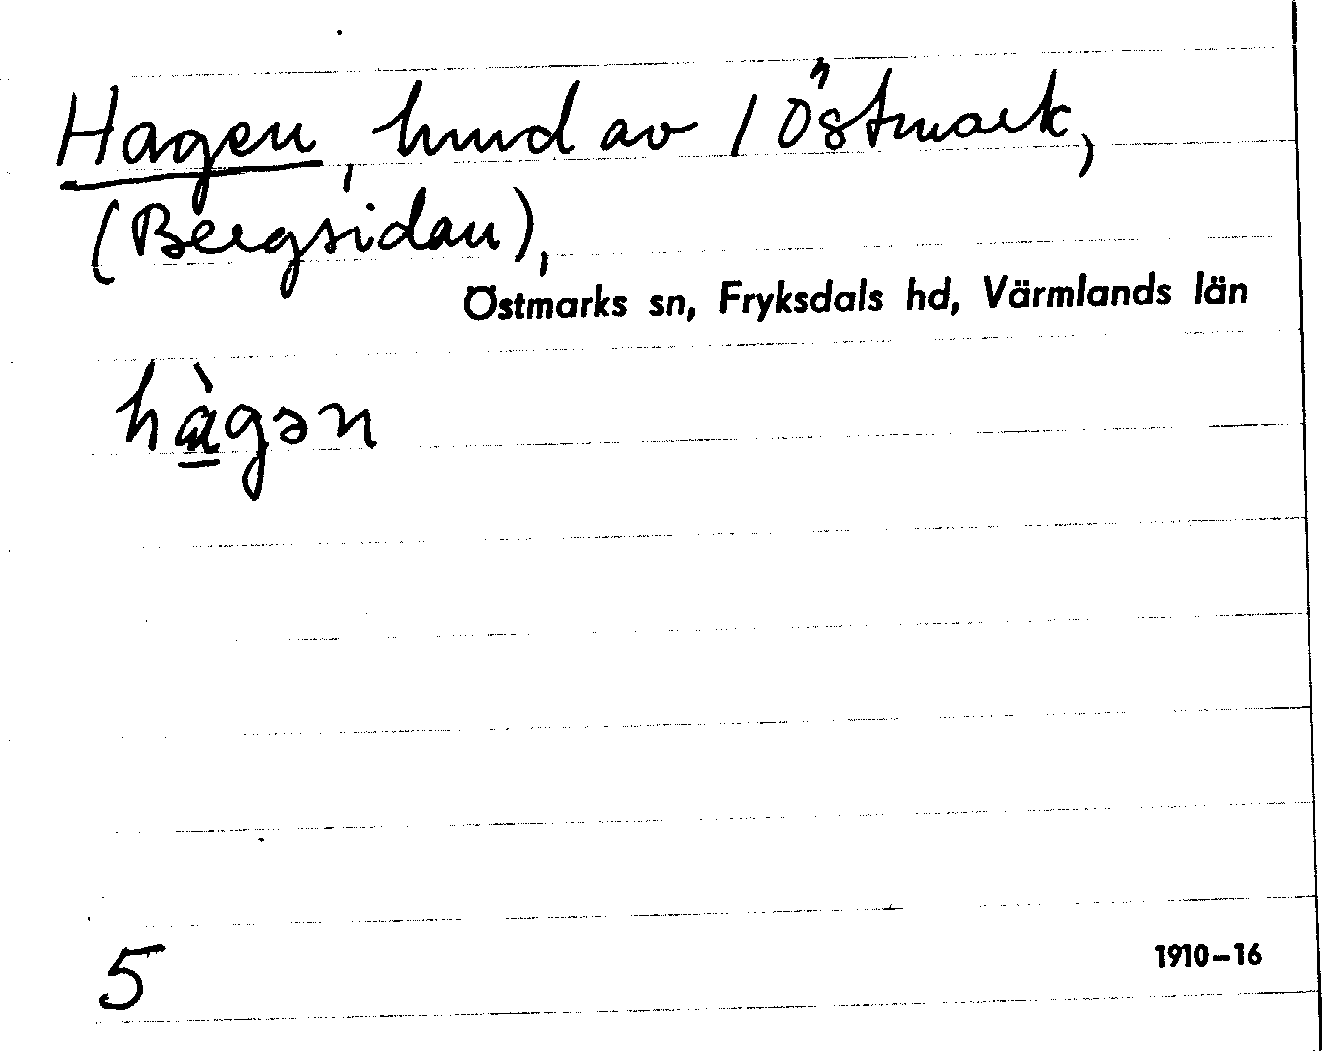 Hagen, hmd av 1 Östmark,
(Bergsidan),
Östmarks sn, Fryksdals hd, Värmlands län
hàgən
5
1910–16